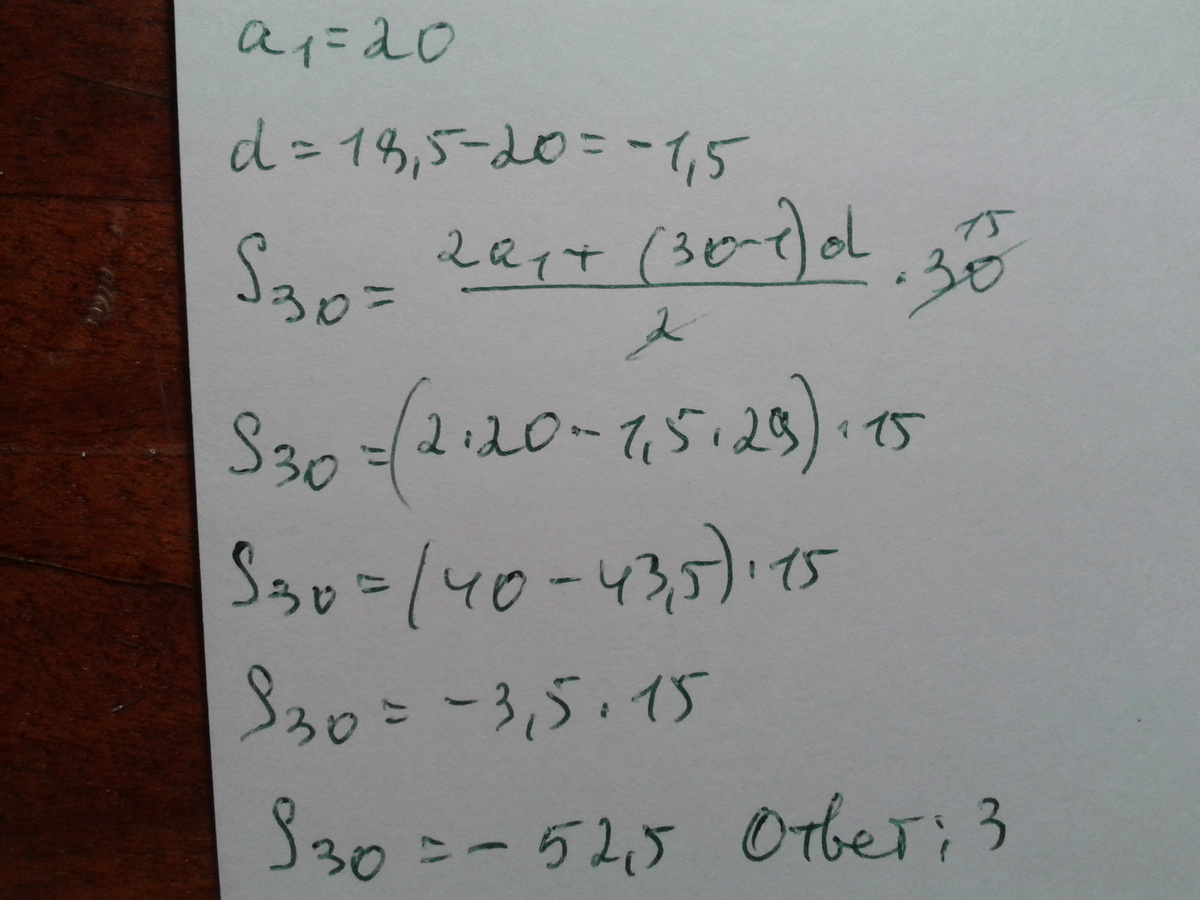 a₁=20
d=18,5-20=-1,5
S₃₀= (2a₁+(30-1)d)/2 · 30 15
S₃₀=(2·20-1,5·29)·15
S₃₀=(40-43,5)·15
S₃₀=-3,5·15
S₃₀=-52,5 Ответ: 3